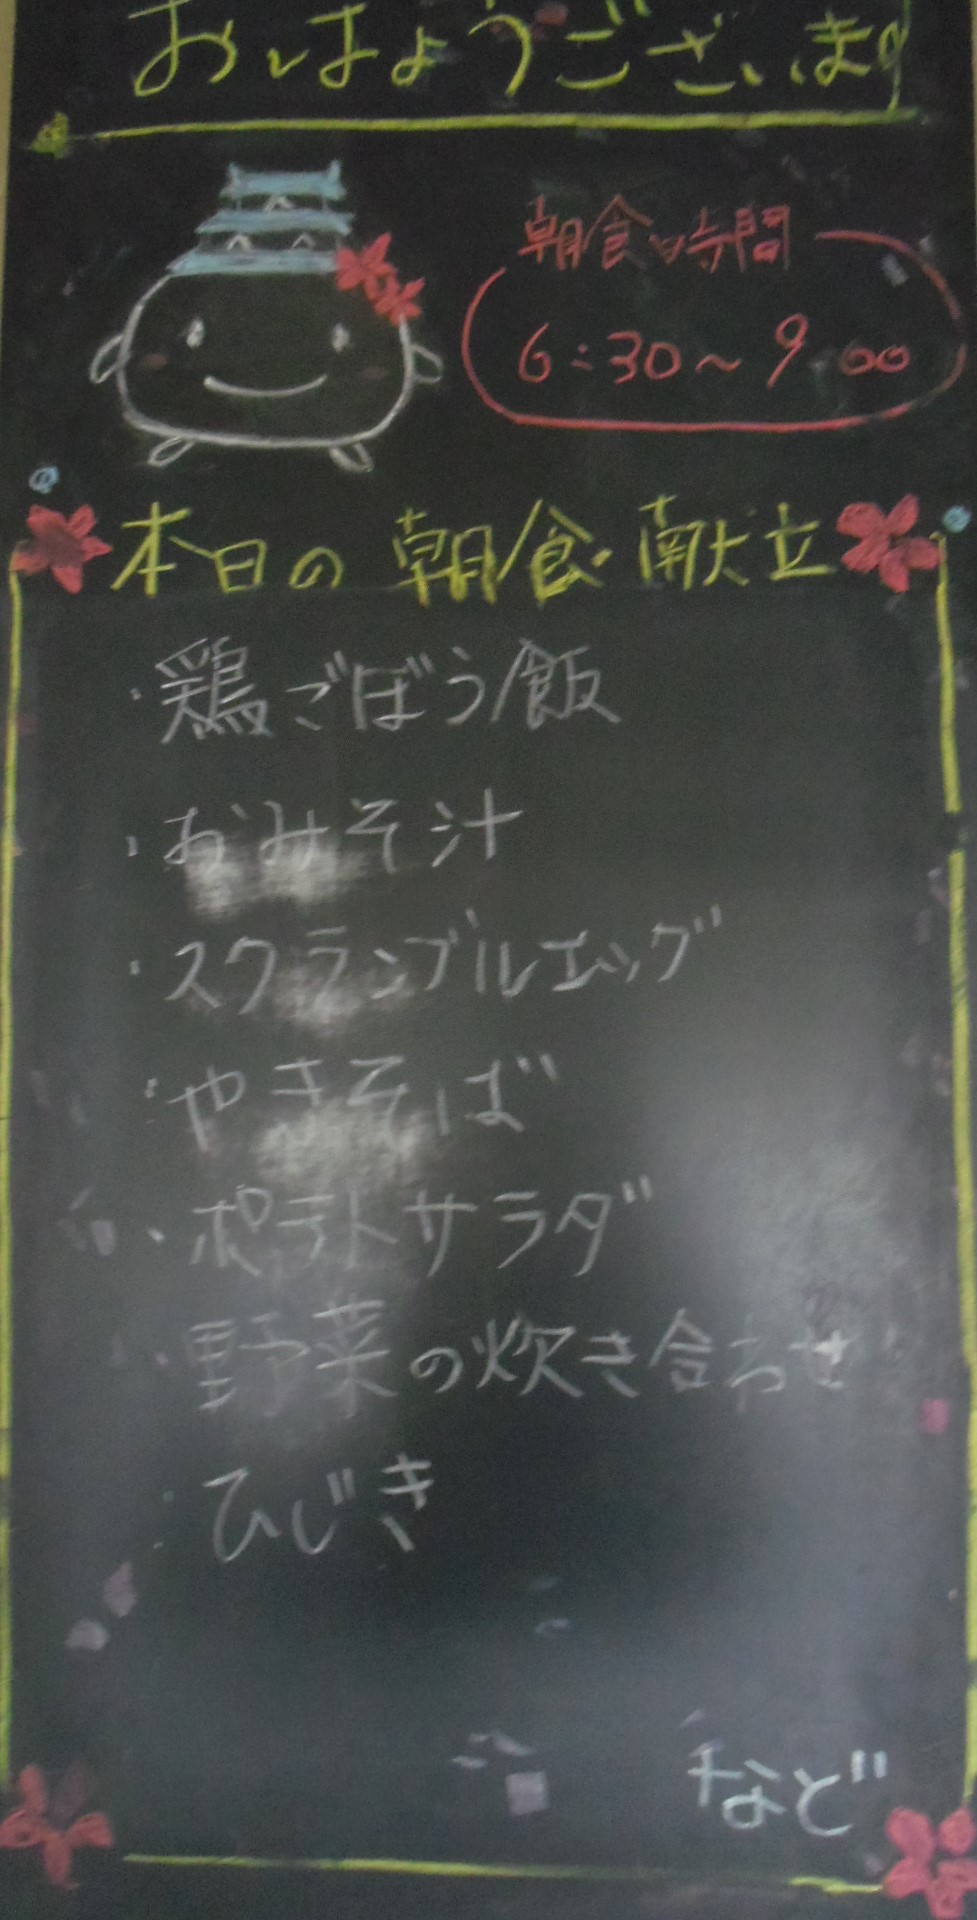 おはようございます
朝食時間
6:30～9:00
本日の朝食献立
・鶏ごぼう飯
・おみそ汁
・スクランブルエッグ
・やきそば
・ポテトサラダ
・野菜の炊き合わせ
・ひじき
など